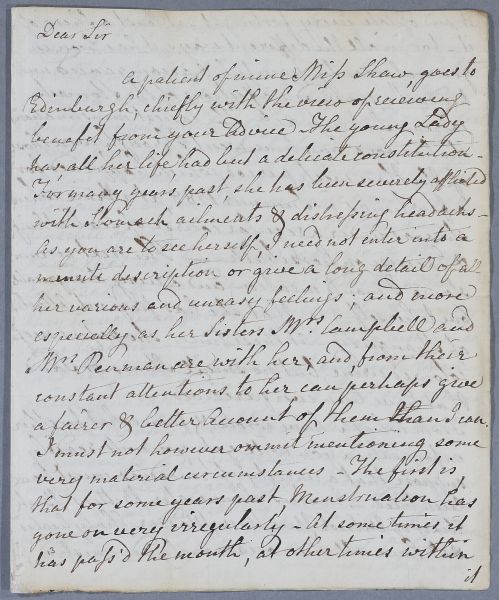 Dear Sir
a patient of mine Miss Shaw, goes to
Edinburgh, chiefly with the view of receiving
benefit from your advice - The young Lady
has all her life, had but a delicate constitution -
For many years past, she has been severely afflicted
with Stomach ailments & distressing headachs -
As you are to see herself, I need not enter into a
minute description or give a long detail of all
her various and uneasy feelings; and more
especially as her Sisters Mrs Campbell and
Mrs Penman are with her, and from their
constant attentions to her can perhaps give
a fairer & better account of them than I can.
I must not however ommit mentioning some
very material circumstances - The first is
that for some years past, Menstruation has
gone on very irregularly - At some times it
has pass'd the month, at other times within
it